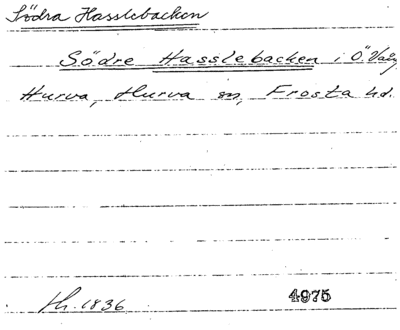 Södra Hasslebacken
Södre Hasslebacken i Ö. Vång
Hurva, Hurva sn, Frosta hd.
lh. 1836 4975